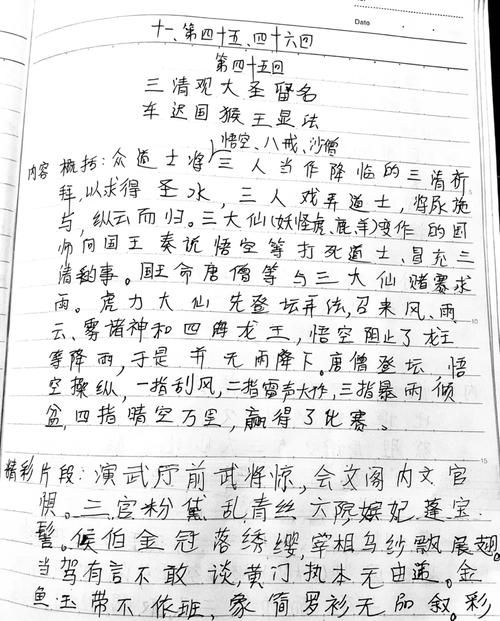 Date
十一、第四十五、四十六回
第四十五回
三清观大圣留名
车迟国猴王显法
悟空、八戒、沙僧
内容概括:众道士将三人当作降临的三清祈
拜,以求得圣水,三人戏弄道士,将尿施
与,纵云而归。三大仙(妖怪虎、鹿、羊)变作的国
师向国王奏说悟空等打死道士、冒充三
清的事。国王命唐僧等与三大仙赌赛求
雨。虎力大仙先登坛弄法,召来风、雨
云、雾诸神和四海龙王,悟空阻止了龙王
等降雨,于是并无雨降下。唐僧登坛,悟
空操纵,一指刮风,二指雷声大作,三指暴雨倾
盆,四指晴空万里,赢得了比赛。
精彩片段:演武厅前武将惊,会文阁内文官
惧。三宫粉黛乱青丝六院嫔妃蓬宝
髻。侯伯金冠落绣缨,宰相乌纱飘展翅。
当驾有言不敢谈,黄门执本无由递。金
鱼玉带不依班,象简罗衫无品叙。彩